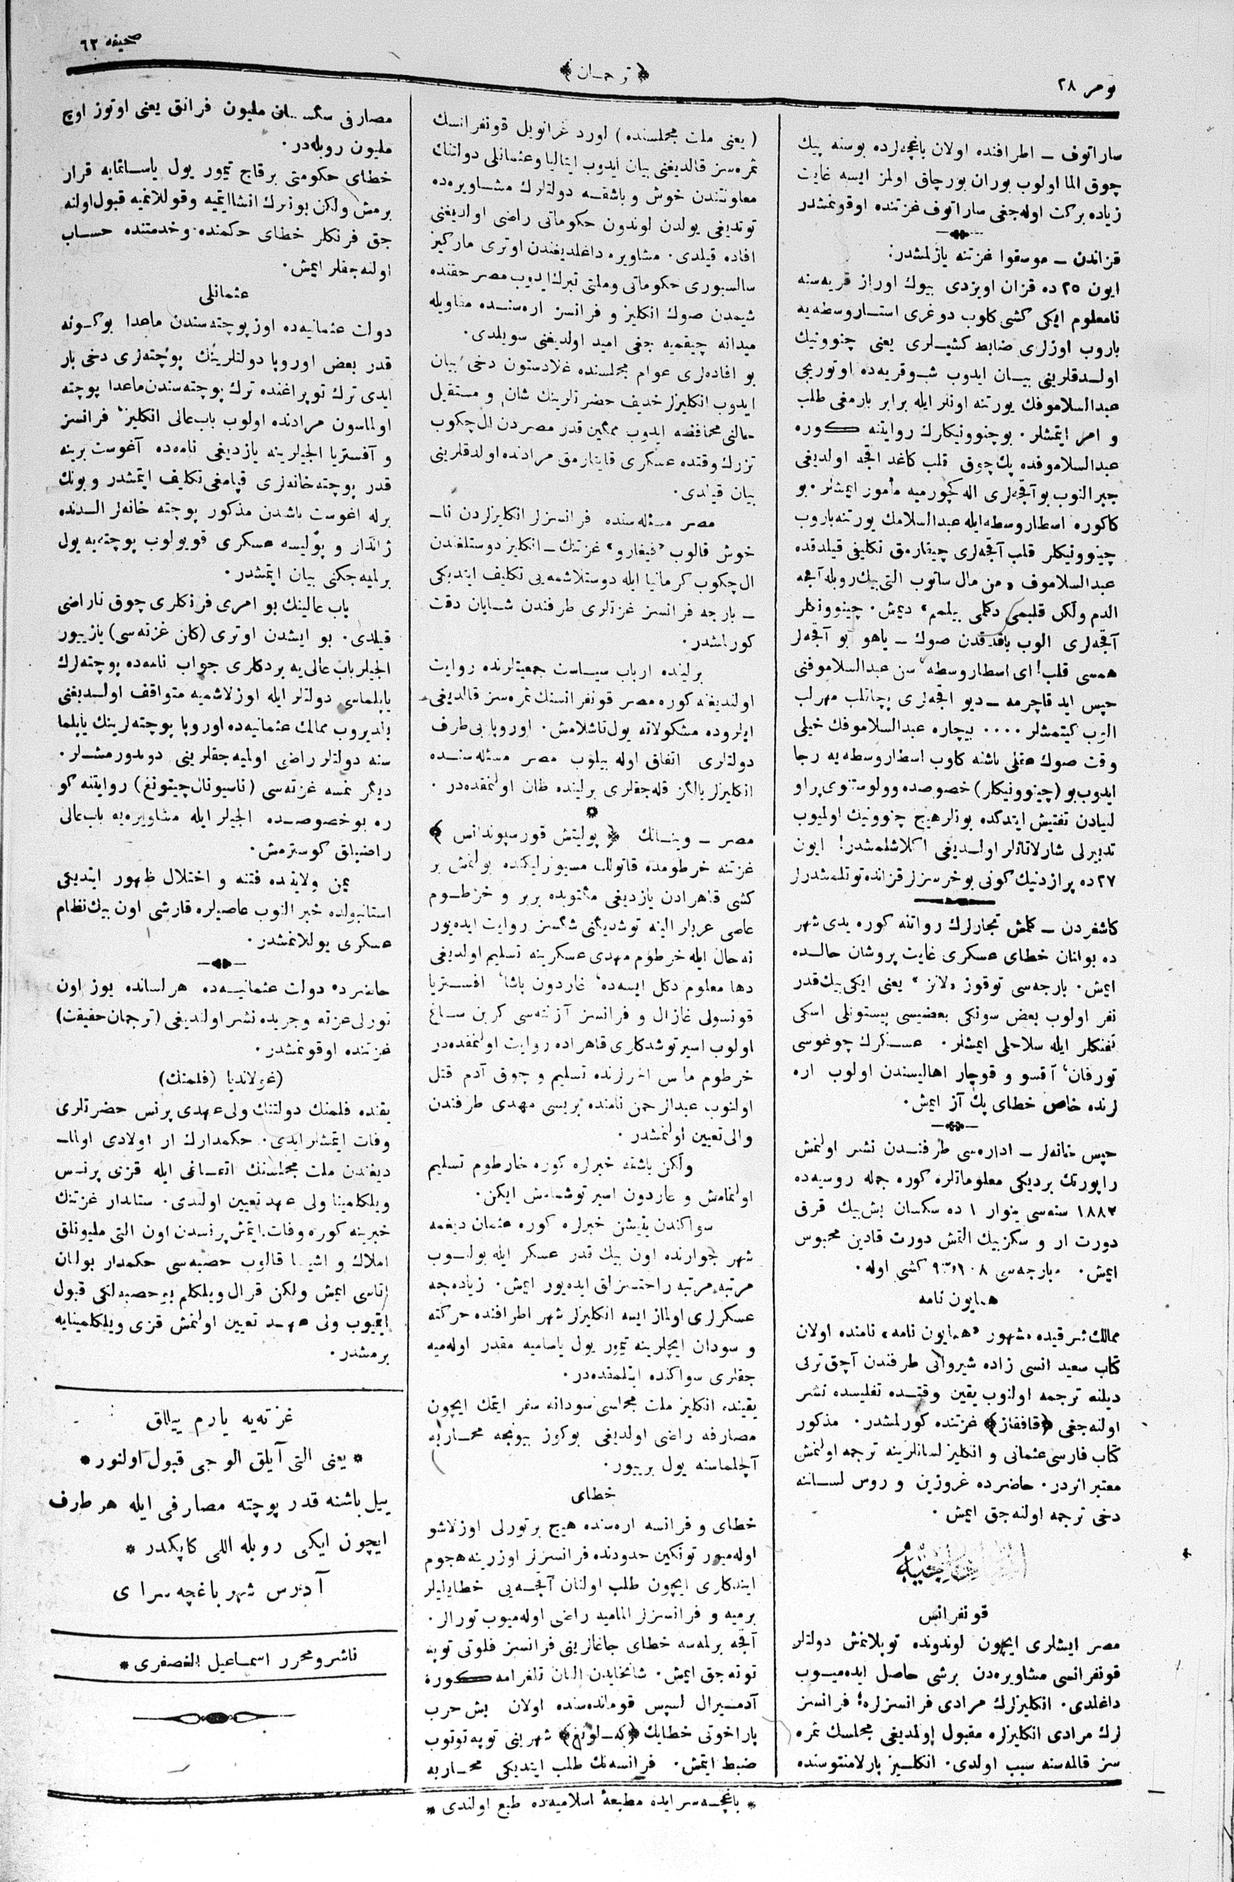 نومر ٢٨
﴿ ترجمان ﴾
صحیفه ٦٣
ساراتوف ــ اطرافنده اولان باغچه‌لرده بوسنه پیك
چوق الما اولوب بوران بورچاق اولمز ایسه غایت
زیاده برکت اوله‌جغی ساراتوف غزتنده اوقونمشدر
قزاندن ــ موسقوا غزتنه یازلمشدر:
ایون ٢٥ ده قزان اویزدی بیوك اوراز قریه‌سنه
نامعلوم ایکی کشی کلوب دوغری استاروسطه‌یه
باروب اوزلری ضابط کشیلری یعنی چنوونیك
اولدقلرینی بیان ایدوب شوقریه‌ده اوتوریجی
عبدالسلاموفك یورتنه اونلر ایله برابر بارمغی طلب
و امر ایتمشلر. بوچنوونیکلرك روایتنه کوره
عبدالسلاموفده پك چوق قلب کاغد اقچه اولدیغی
خبر النوب بو آقچه‌لری اله کچورمیه مأمور ایمشلر. بو
کاکوره اسطاروسطه ایله عبدالسلامك یورتنه باروب
چینوونیکلر قلب آقچه‌لری چیقارمق تکلیفی قیلدقده
عبدالسلاموف «من مال ساتوب التی بیك روبله آقچه
الدم ولکن قلبمی دکلمی بیلمم» دیمش. چینوونیکلر
آقچه‌لری الوب باقدقدن صوك ــ یاهو بو آقچه‌لر
همسی قلب! ای اسطاروسطه، سن عبدالسلاموفنی
حپس اید قاچرمه ــ دیو اقچه‌لری پچاتلب مهرلب
الوب کیتمشلر .... بیچاره عبدالسلاموفك خیلی
وقت صوك عقلی باشنه کلوب اسطاروسطه‌یه رجا
ایدوب بو (چینوونیکلر) خصوصده وولوستنوی پراو
لنیادن تفتیش ایتدکده بونلر هیچ چنوونیك اولمیوب
تدبیرلی شارلاتانلر اولدیغی اکلاشلمشدر! ایون
٢٧ ده پرازدنیك کونی بو خرسزلر قزانده توتلمشدرلر
کاشغردن ــ کلمش تجارلرك رواتنه کوره یدی شهر
ده بولنان خطای عسکری غایت پروشان حالده
ایمش. بارجه‌سی توقوز «لانز» یعنی ایکی بیك قدر
نفر اولوب بعض سونکی بعضیسی پیستونلی اسکی
تفنکلر ایله سلاحلی ایمشلر. عسکرك چوغوسی
تورفان، آقسو و قوچار اهالیسندن اولوب اره
لرنده خاص خطای پك آز ایمش.
حپس خانه‌لر ــ اداره‌سی طرفندن نشر اولنمش
راپورتك بردیکی معلوماتلره کوره جمله روسیه‌ده
١٨٨٢ سنه‌سی ینوار ١ ده سکسان بش بیك قرق
دورت ار و سکز بیك التمش دورت قادین محبوس
ایمش. بارجه‌سی ٩٣١٠٨ کشی اوله.
همایون نامه
ممالك شرقیده مشهور «همایون نامه» نامنده اولان
کتاب سعید انسی زاده شیروانی طرفندن آچق ترکی
دیلنه ترجمه اولنوب یقین وقتده تفلیسده نشر
اولنه جغی ﴿قافقاز﴾ غزتنده کورلمشدر. مذکور
کتاب فارسی عثمانی و انکلیز لسانلرینه ترجمه اولنمش
معتبر اثردر. حاضرده غروزین و روس لسانه
دخی ترجمه اولنه جق ایمش.
قونفرانس
مصر ایشلری ایچون لوندونده توپلانمش دولتلر
قونفرانسی مشاوره‌دن برشی حاصل ایده‌میوب
داغلدی. انکلیزلرك مرادی فرانسزلره؛ فرانسز
لرك مرادی انکلیزلره مقبول اولمدیغی مجلسك ثمره
سز قالمه‌سنه سبب اولدی. انکلیز پارلامنتوسنده
(یعنی ملت مجلسنده) لورد غرانویل قونفرانسك
ثمره‌سز قالدیغنی بیان ایدوب ایتالیا و عثمانلی دولتنك
معاونتندن خوش و باشقه دولتلرك مشاوره‌ده
توتدیغی یولدن لوندون حکوماتی راضی اولدیغنی
افاده قیلدی. مشاوره داغلدیغندن اوتری مارکیز
سالسبوری حکوماتی وملتی تبرك ایدوب مصر حقنده
شیمدن صوك انکلیز و فرانسز اره‌سنده مقاویله
میدانه چیقمیه جغی امید اولدیغنی سویلدی.
بو افاده‌لری عوام مجلسنده غلادستون دخی بیان
ایدوب انکلیزلر خدیف حضرتلرینك شان و مستقبل
حالنی محافظه ایدوب ممکین قدر مصردن ال چکوب
تزرك وقتده عسکری قایتارمق مرادنده اولدقلرینی
بیان قیلدی.
مصر مسئله‌سنده فرانسزلر انکلیزلردن نا ــ
خوش قالوب «فیغارو» غزتنك ــ انکلیز دوستلغندن
ال چکوب کرمانیا ایله دوستلاشمه‌یی تکلیف ایتدیکی
ــ بارجه فرانسز غزتلری طرفندن شایان دقت
کورلمشدر.
برلینده ارباب سیاست جمعیتلرنده روایت
اولندیغنه کوره مصر قونفرانسنك ثمره‌سز قالدیغی
ایلروده مشکولاته یول تاشلامش. اوروپا بی طرف
دولتلری اتفاق اوله بیلوب مصر مسئله‌سنده
انکلیزلر یالکز قله‌جقلری برلینده ظان اولنمقده‌در.
مصر ــ وینه‌نك ﴿ پولیتش قورسپوندانس ﴾
غزتنه خرطومده قاتولك مسیونرلیکنده بولنمش بر
کشی قاهرادن یازدیغی مکتوبده بربر و خرطوم
عاصی عربلر الینه توشدیکنی شکسز روایت ایده‌یور
نه حال ایله خرطوم مهدی عسکرینه تسلیم اولدیغی
دها معلوم دکل ایسه‌ده، غاردون پاشا، افستریا
قونسولی غازال و فرانسز آژنته‌سی کربن ساغ
اولوب اسیر توشدکلری قاهراده روایت اولنمقده‌در
اولنوب عبدالرحمن نامنده بریسی مهدی طرفندن
والی تعیین اولنمشدر.
ولکن باشقه خبرلره کوره خارطوم تسلیم
اولنمامش و غاردون اسیر توشمامش ایکن.
سواکندن یتیشن خبرلره کوره عثمان دیغمه
شهر جوارنده اون بیك قدر عسکر ایله بولنوب
مرتبه مرتبه راحتسزلق ایده‌یور ایمش. زیاده‌جه
عسکرلری اولماز ایسه انکلیزلر شهر اطرافنده حرکته
و سودان ایچلرینه تیمور یول یاسامیه مقدر اوله‌میه
جقلری سواکنده ایتلمقده‌در.
یقینده انکلیز ملت مجلسی سودانه سفر ایتمك ایچون
مصارفه راضی اولدیغی بوکوز بیونجه محاربه
آچلماسنه یول بریور.
خطای
خطای و فرانسه اره‌سنده هیچ برتورلی اوزلاشو
اوله‌میور تونکین حدودنده فرانسزلر اوزرینه هجوم
ایتدکلری ایچون طلب اولنان آقچه‌یی خطایلیلر
برمیه و فرانسزلر المامیه راضی اوله‌میوب تورالر.
آقچه برلمه‌سه خطای جاغالرینی فرانسز فلوتی توپه
توته جق ایمش. شانخایدن النان تلغرامه کوره
آدمیرال لسپس قوماندەسنده اولان بش حرب
پاراخوتی خطاینك ﴿که‌ــلونغ﴾ شهرینی توپه توتوب
ضبط ایتمش. فرانسه‌نك طلب ایتدیکی محاربه
مصارفی سکسان ملیون فرانق یعنی اوتوز اوچ
ملیون روبله‌در.
خطای حکومتی برقاج تیمور یول یاساتمایه قرار
برمش ولکن بونرك انشاایتمیه وقوللانمیه قبول اولنه
جق فرنکلر خطای حکمنده وخدمتنده حساب
اولنه‌جقلر ایمش.
عثمانلی
دولت عثمانیه‌ده اوز پوچته‌سندن ماعدا بوکونه
قدر بعض اوروپا دولتلرینك پوچته‌لری دخی بار
ایدی ترك توپراغنده ترك پوچته‌سندن ماعدا پوچته
اولماسون مرادنده اولوب باب عالی انکلیز، فرانسز
و آفستریا الچیلرینه یازدیغی نامه‌ده آغوست برینه
قدر پوچته خانه‌لری قپامغی تکلیف ایتمشدر و بونك
برله اغوست باشدن مذکور پوچته خانه‌لر الدنده
ژاندار و پولیسه عسکری قویولوب پوچته‌یه یول
برلمیه‌جکنی بیان ایتمشدر.
باب عالینك بو امری فرنکلری چوق ناراضی
قیلدی. بو ایشدن اوتری (کلن غزته‌سی) یازییور
الچیلر باب عالی‌یه بردکلری جواب نامه‌ده پوچته‌لرك
یاپلماسی دولتلر ایله اوزلاشمیه متواقف اولدیغنی
بلدیروب ممالك عثمانیه‌ده اوروپا پوچته‌لرینك یاپلما
سنه دولتلر راضی اولمیه جقلرینی دویدورمشلر.
دیکر نمسه غزته‌سی (ناسیونال چیتونغ) روایتنه کو
ره بو خصوصده الچیلر ایله مشاوره‌یه باب عالی
راضیلق کوسترمش.
یمن ولایتده فتنه و اختلال ظهور ایتدیکی
استانبولده خبر النوب عاصیلره قارشی اون بیك نظام
عسکری یوللانمشدر.
حاضرده دولت عثمانیه‌ده هر لسانده یوز اون
تورلی غزته و جریده نشر اولندیغی (ترجمان حقیقت)
غزتنده اوقونمشدر.
(غولاندیا (فلمنك)
یقنده فلمنك دولتنك ولی عهدی پرنس حضرتلری
وفات ایتمشلر ایدی. حکمدارك ار اولادی اولما ــ
دیغندن ملت مجلسنك اتفاغی ایله قزی پرنس
ویلکلمینا ولی عهد تعیین اولندی. ستاندار غزتنك
خبرینه کوره وفات ایتمش پرنسدن اون التی ملیونلق
املاك و اشیا قالوب حصه‌سی حکمدار بولنان
اتاسی ایمش ولکن قرال ویلکلم بو حصه‌لکی قبول
ایتمیوب ولی عهد تعیین اولنمش قزی ویلکلمینایه
برمشدر.
غزته‌یه یارم ییللق
* یعنی التی آیلق الوجی قبول اولنور *
ییل باشنه قدر پوچته مصارفی ایله هر طرف
ایچون ایکی روبله اللی کاپکدر *
آدرس شهر باغچه سرای
ناشر ومحرر اسماعیل الغصفری *
* باغچه‌سرایده مطبعهٔ اسلامیه‌ده طبع اولندی *